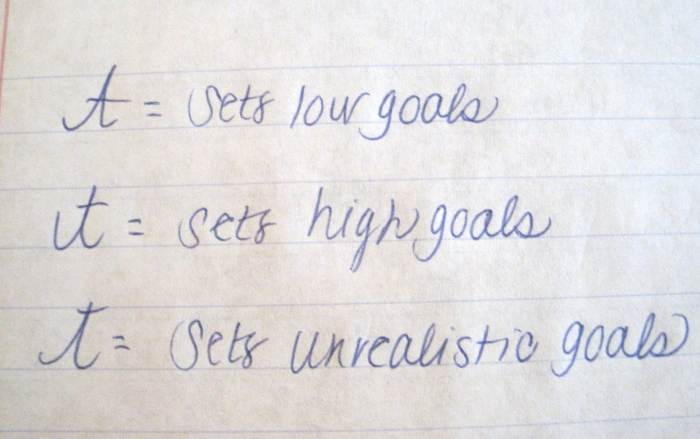 t = sets low goals
t = sets high goals
t = sets unrealistic goals